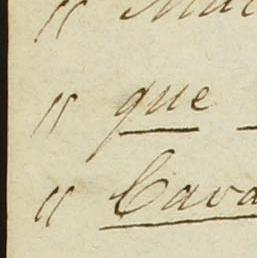 "
" que
" Cava